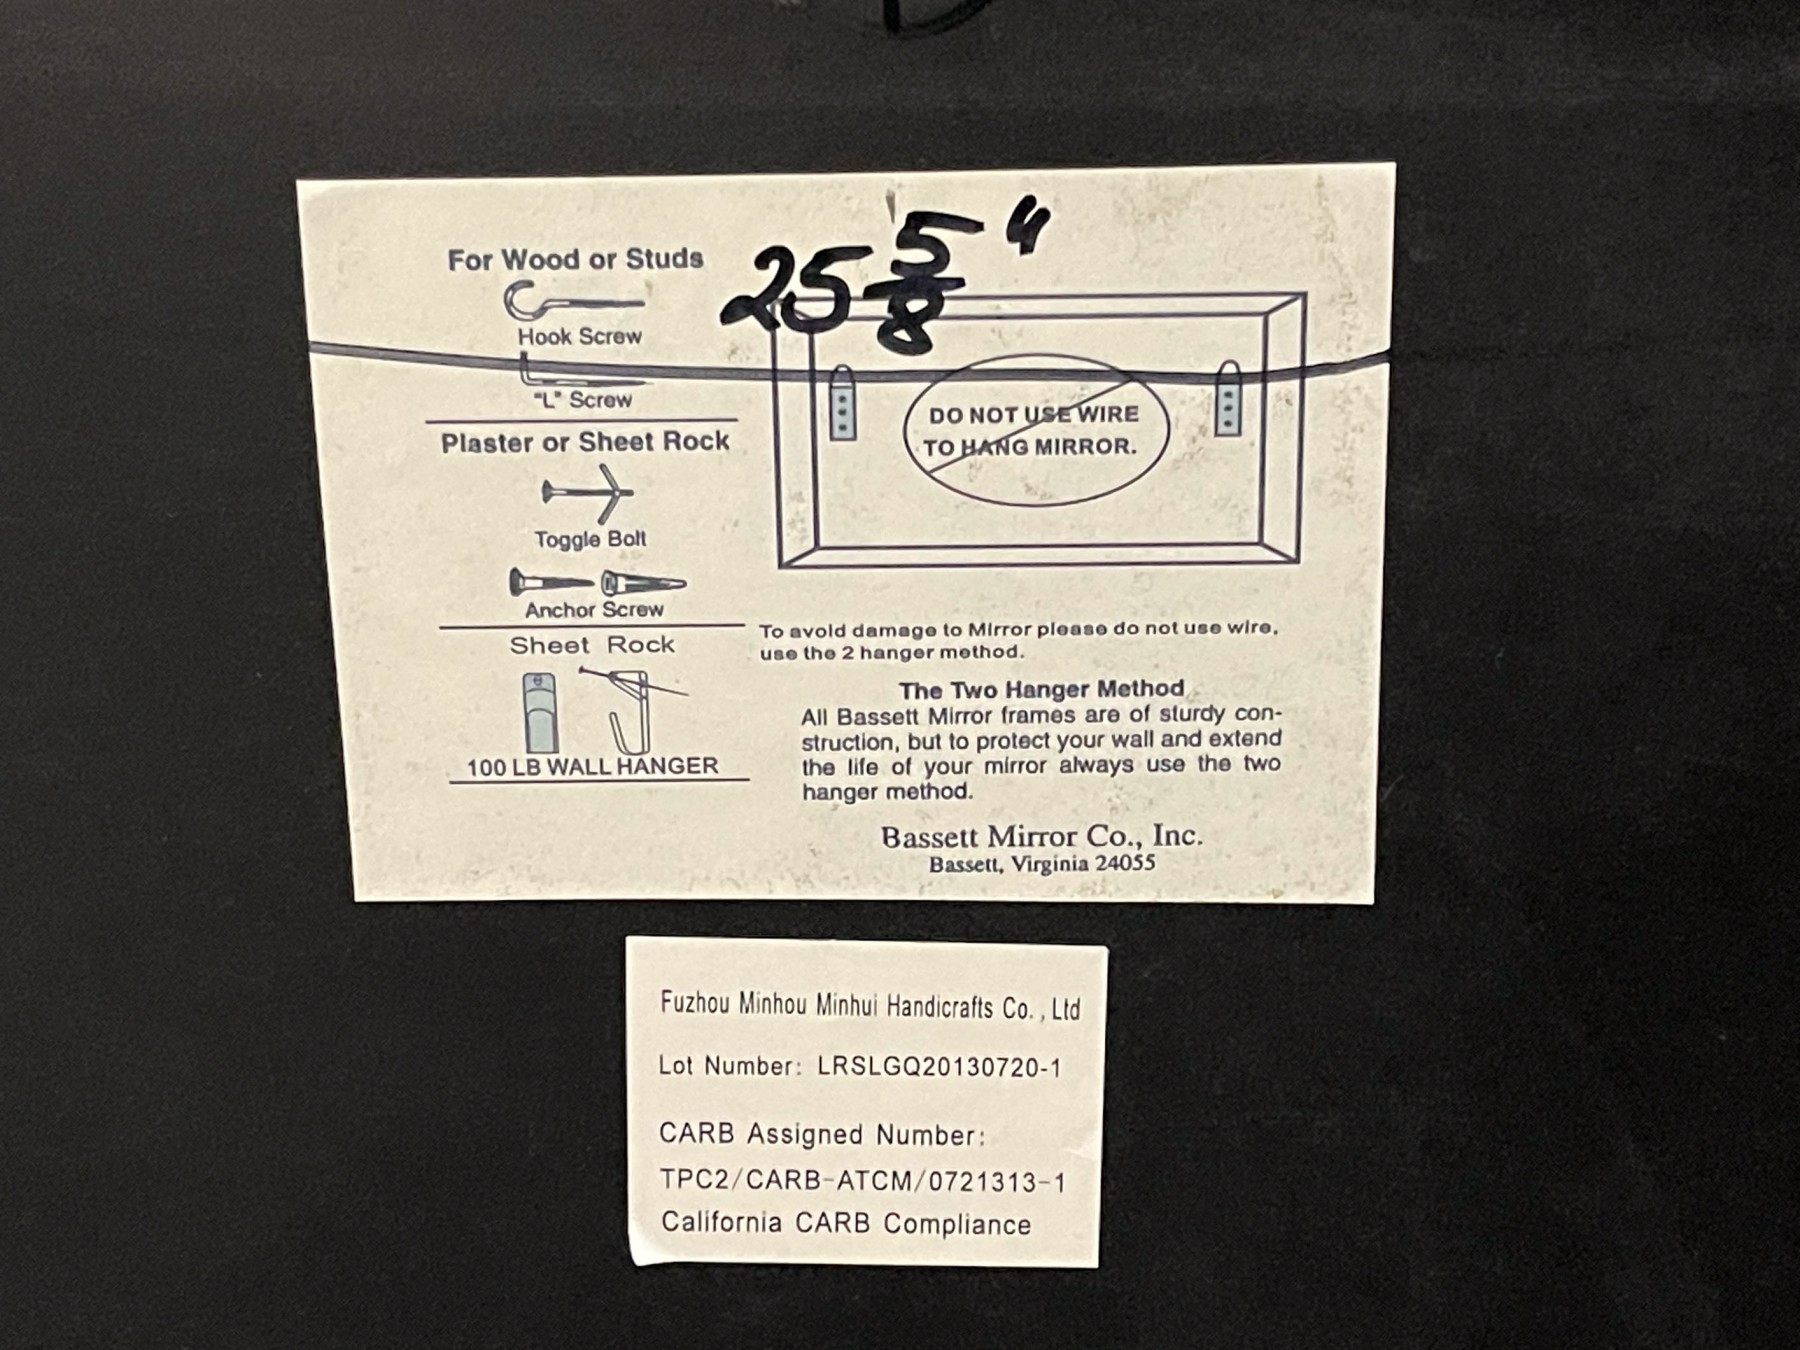 25 5/8 "
For Wood or Studs
Hook Screw
"L" Screw
Plaster or Sheet Rock
Toggle Bolt
Anchor Screw
Sheet Rock
100 LB WALL HANGER
DO NOT USE WIRE
TO HANG MIRROR.
To avoid damage to Mirror please do not use wire,
use the 2 hanger method.
The Two Hanger Method
All Bassett Mirror frames are of sturdy con-
struction, but to protect your wall and extend
the life of your mirror always use the two
hanger method.
Bassett Mirror Co., Inc.
Bassett, Virginia 24055
Fuzhou Minhou Minhui Handicrafts Co., Ltd
Lot Number: LRSLGQ20130720-1
CARB Assigned Number:
TPC2/CARB-ATCM/0721313-1
California CARB Compliance